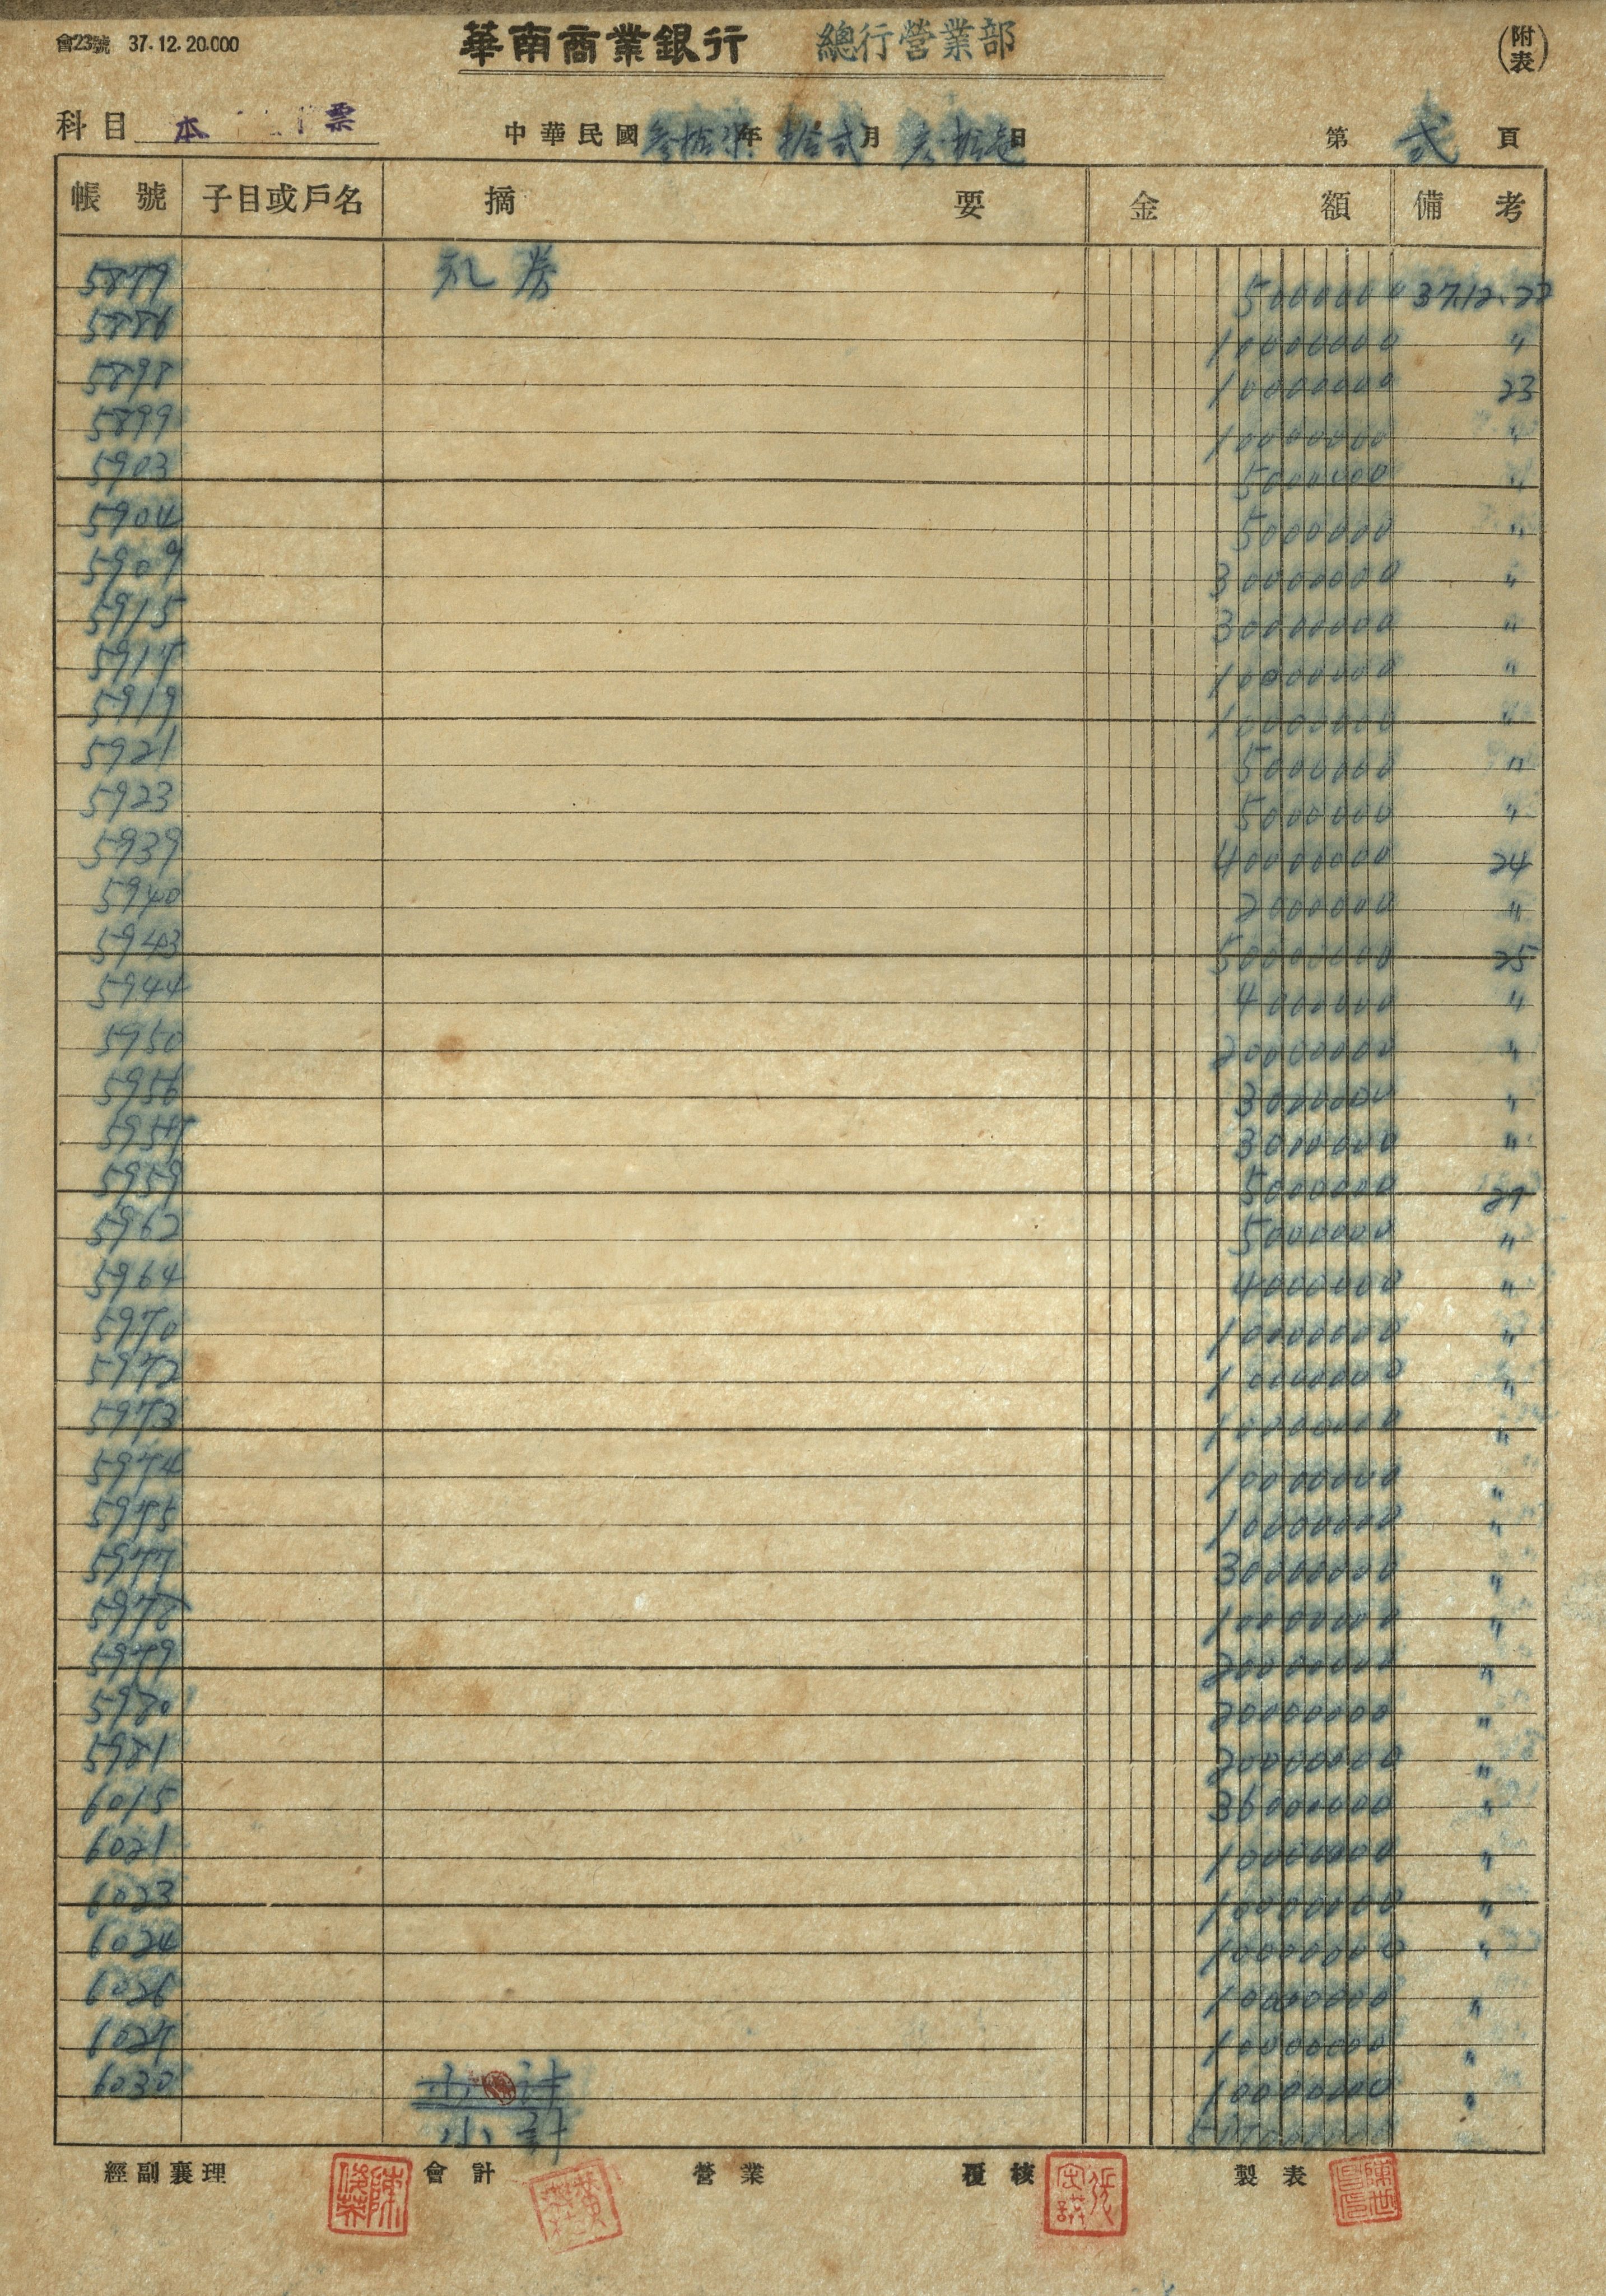 會23號 37.12.20.000
華南商業銀行 總行營業部
(附表)
科目 本 票
中華民國叁拾柒年拾貳月叁拾壱日
第 弍 頁
帳號 子目或戶名 摘要 金額 備考
5879 5000000 37.12.22
5886 10000000 〃
5898 10000000 23
5899 10000000 〃
5903 5000000 〃
5904 5000000 〃
5909 30000000 〃
5915 30000000 〃
5917 10000000 〃
5919 10000000 〃
5921 5000000 〃
5923 5000000 〃
5939 40000000 24
5940 2000000 〃
5943 50000000 25
5944 4000000 〃
5950 20000000 〃
5956 3000000 〃
5957 3000000 〃
5959 5000000 27
5962 5000000 〃
5964 4000000 〃
5970 10000000 〃
5972 10000000 〃
5973 10000000 〃
5974 10000000 〃
5975 10000000 〃
5977 30000000 〃
5978 10000000 〃
5979 20000000 〃
5980 20000000 〃
5981 20000000 〃
6015 36000000 〃
6021 10000000 〃
6023 10000000 〃
6024 10000000 〃
6026 10000000 〃
6027 10000000 〃
6030 小計 10000000 〃
小計
經副襄理 會計 營業 覆核 製表